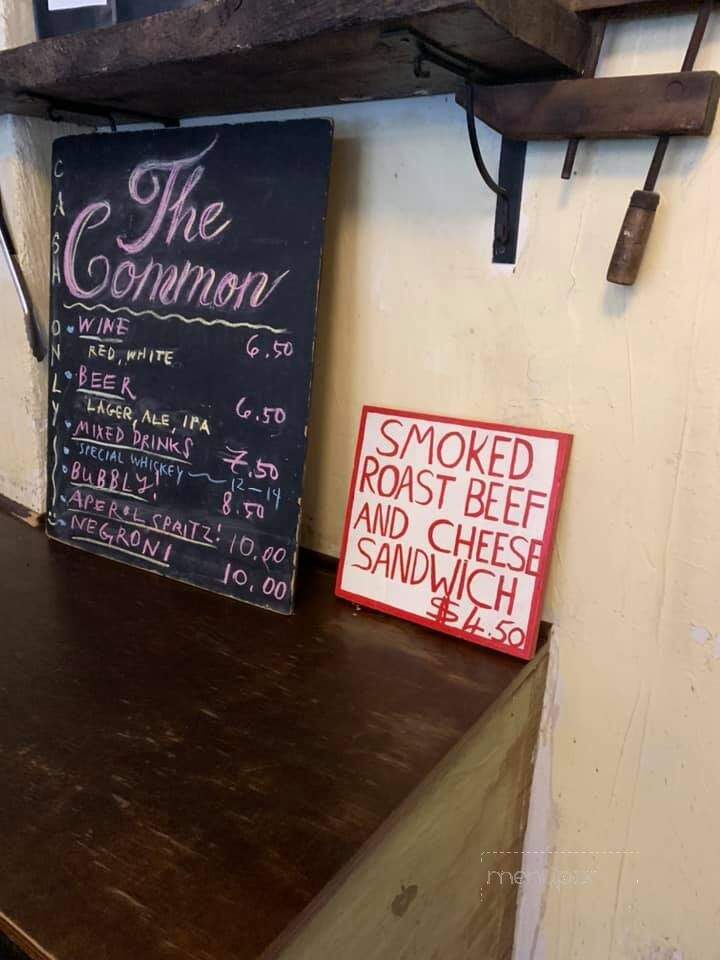 CASH ONLY!
The
Common
WINE 6.50
RED, WHITE
BEER 6.50
LAGER, ALE, IPA
MIXED DRINKS 7.50
SPECIAL WHISKEY — 12-14
BUBBLY! 8.50
APEROL SPRITZ! 10.00
NEGRONI 10.00
SMOKED
ROAST BEEF
AND CHEESE
SANDWICH
$4.50